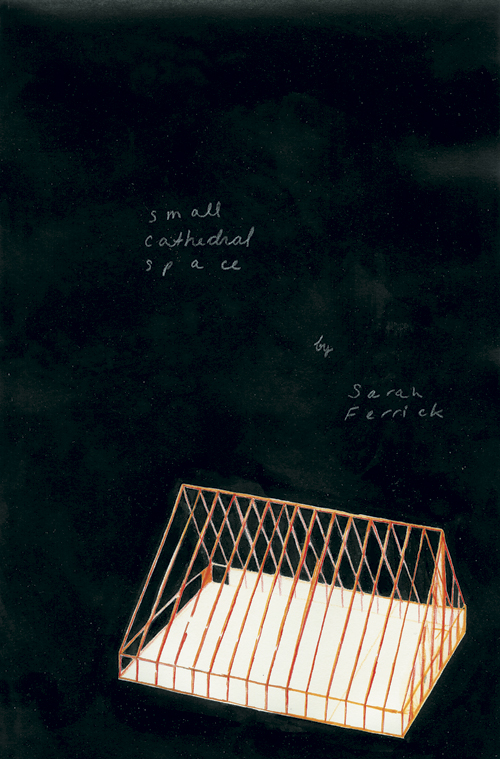 small
cathedral
space
by
Sarah
Ferrick